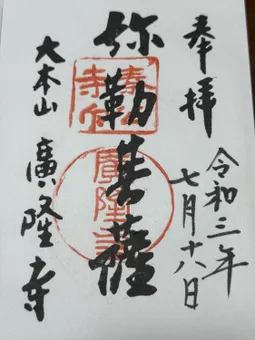 奉拝
令和三年
七月十八日
弥勒菩薩
大本山
廣隆寺